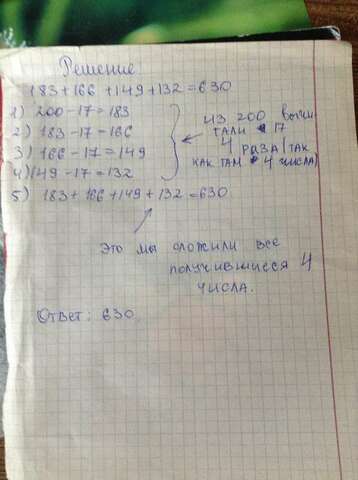 Решение
183+166+149+132=630
1) 200-17=183
2) 183-17=166
3) 166-17=149
4) 149-17=132
5) 183+166+149+132=630
из 200 вычи
тали 17
4 раза (так
как там 4 числа)
это мы сложили все
получившиеся 4
числа.
Ответ: 630